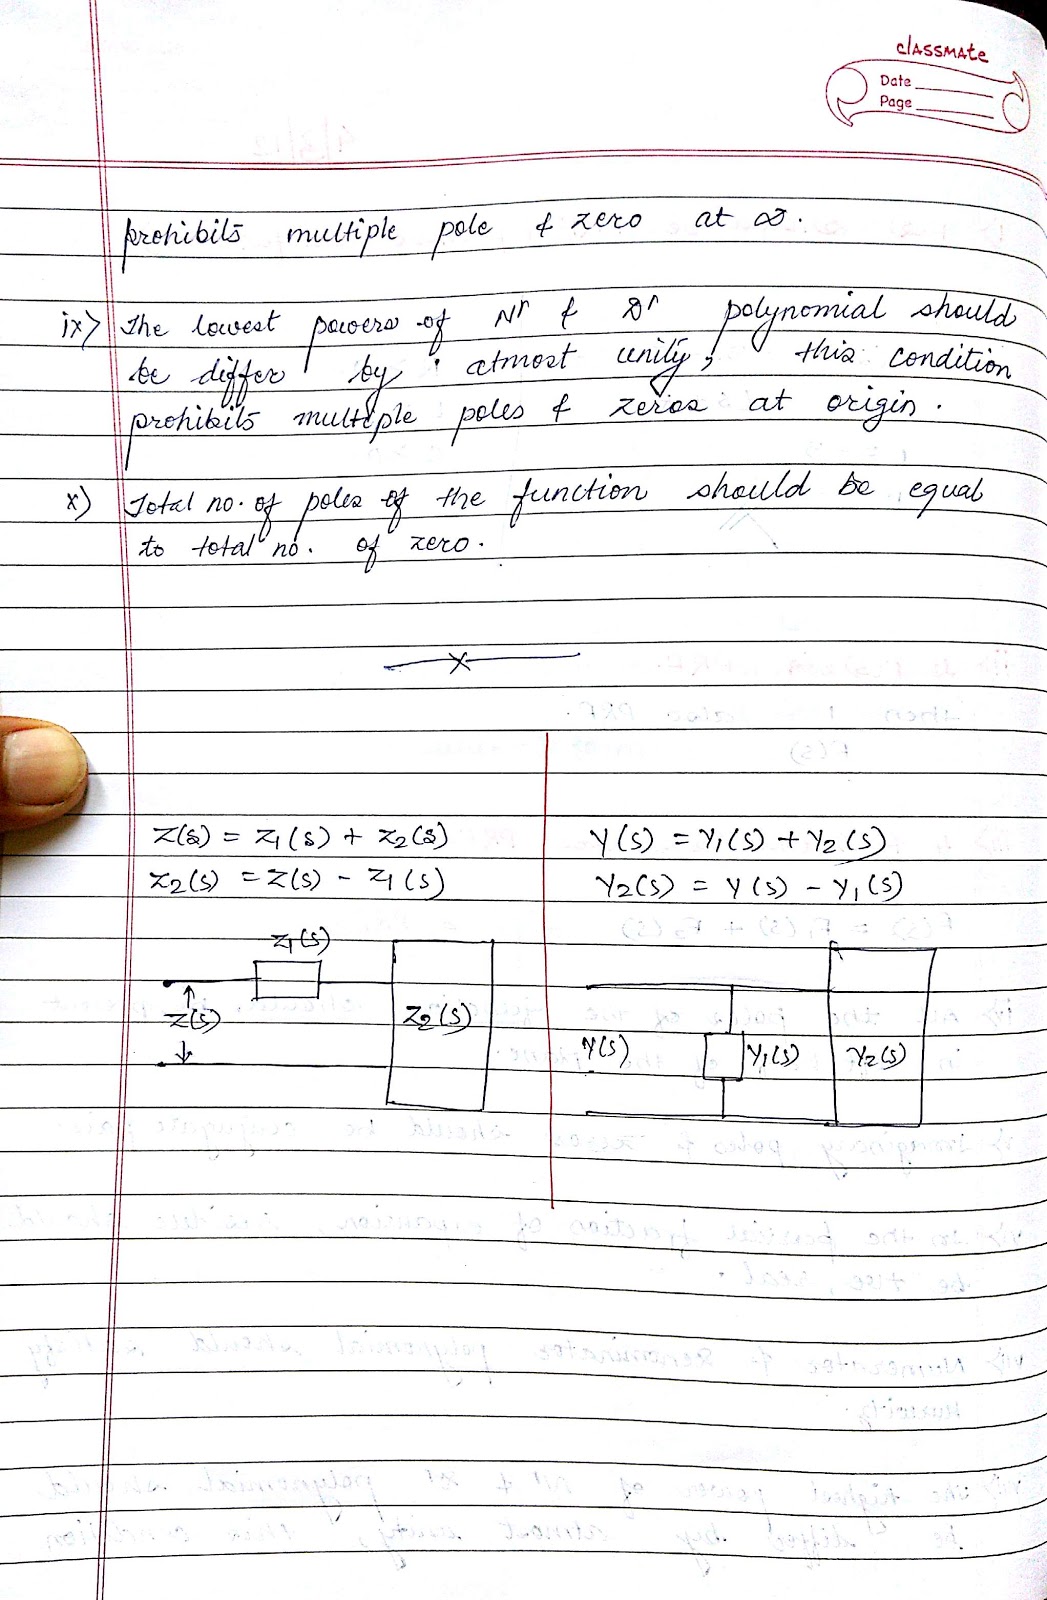 classmate
Date
Page
prohibits multiple pole & zero at ∞.
ix) The lowest powers of Nr & Dr polynomial should
be differ by atmost unity, this condition
prohibits multiple poles & zeros at origin.
x) Total no. of poles of the function should be equal
to total no. of zero.
Z(s) = Z1(s) + Z2(s)
Z2(s) = Z(s) - Z1(s)
Z1(s)
Z(s)
Z2(s)
Y(s) = Y1(s) + Y2(s)
Y2(s) = Y(s) - Y1(s)
Y(s)
Y1(s)
Y2(s)